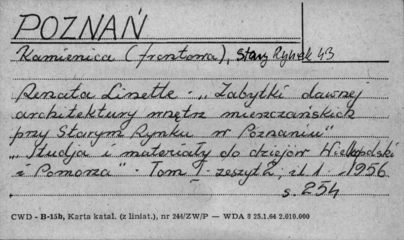 POZNAŃ
Kamienica (frontowa), Stary Rynek 43
Renata Linette - „Zabytki dawnej
architektury wnętrz mieszczańskich
przy Starym Rynku w Poznaniu"
„Studja i materiały do dziejów Wielkopolski
i Pomorza" - Tom I - zeszyt 2, il. 1 - 1956
s. 254
CWD - B-15b, Karta katal. (z liniat.), nr 244/ZW/P — WDA 8 25.1.64 2.010.000